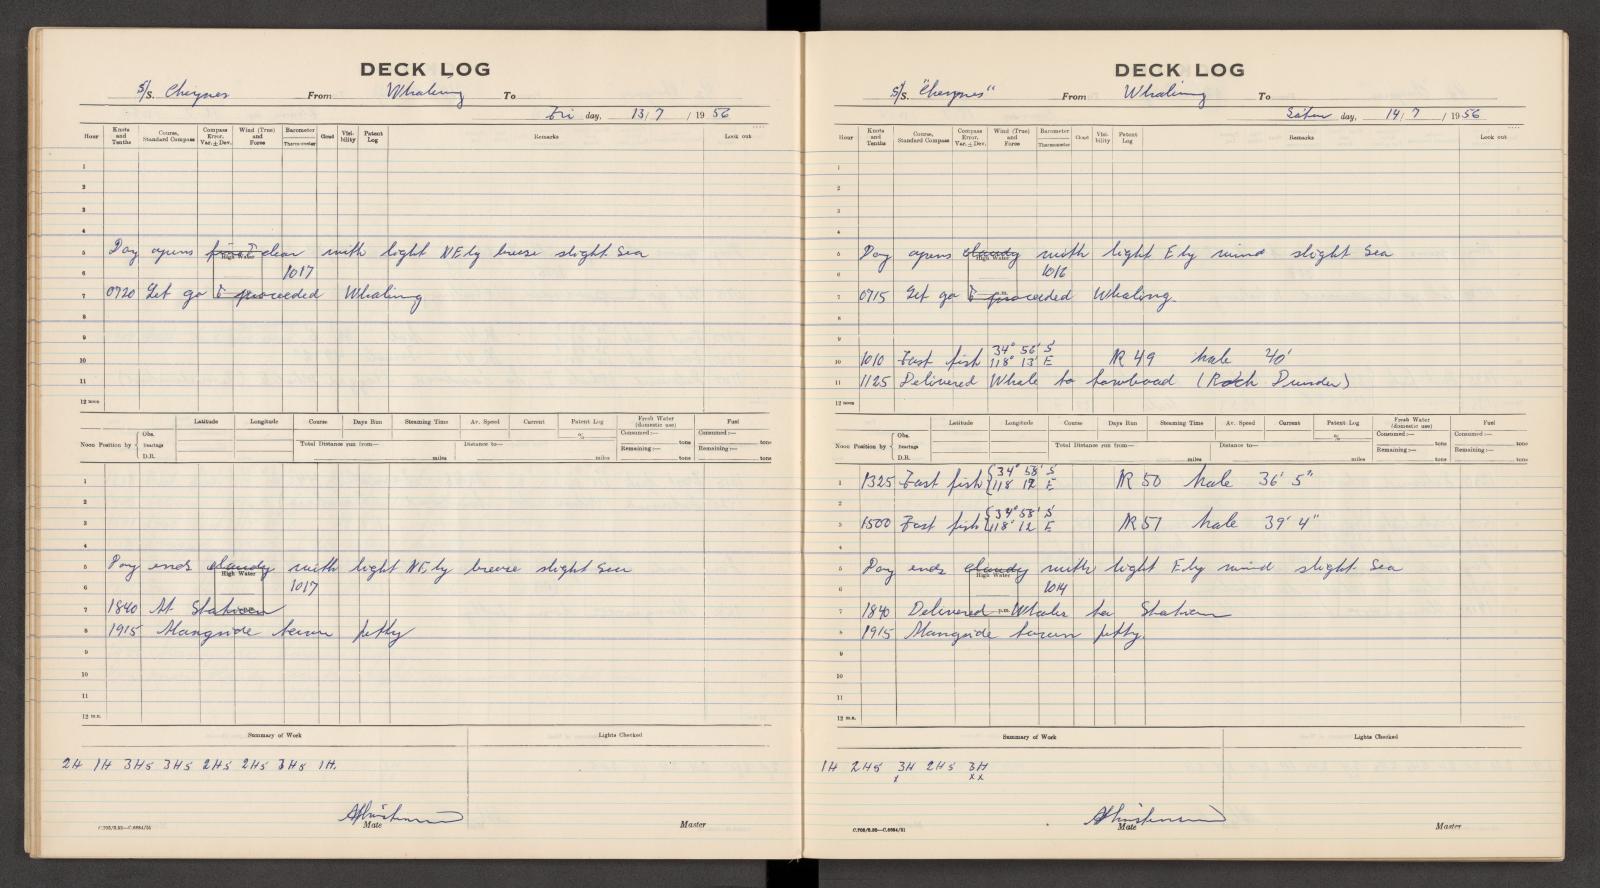 DECK LOG
S/S. Cheynes From Whaling To
Fri day, 13/7 / 19 56
Hour Knots and Tenths Course, Standard Compass Compass Error. Var. ± Dev. Wind (True) and Force Barometer Thermometer Cloud Visibility Patent Log Remarks Look out
1
2
3
4
5 Day opens clear with light NEly breeze slight Sea
High Water
6 1017
7 0720 Let go & proceeded Whaling
8
9
10
11
12 noon
Latitude Longitude Course Days Run Steaming Time Av. Speed Current Patent Log Fresh Water (domestic use) Fuel
Noon Position by Obs. Bearings D.R. % Consumed:— tons Consumed:— tons
Total Distance run from— miles Distance to— miles Remaining:— tons Remaining:— tons
1
2
3
4
5 Day ends cloudy with light NEly breeze slight Sea
High Water
6 1017
7 1840 At Station
8 1915 Alongside town jetty
9
10
11
12 m.n.
Summary of Work Lights Checked
2H 1H 3Hs 3Hs 2Hs 2Hs 3Hs 1H.
Mate Master
DECK LOG
S/S. "Cheynes" From Whaling To
Satur day, 14/7 / 19 56
Hour Knots and Tenths Course, Standard Compass Compass Error. Var. ± Dev. Wind (True) and Force Barometer Thermometer Cloud Visibility Patent Log Remarks Look out
1
2
3
4
5 Day opens cloudy with light Ely wind slight Sea
High Water
6 1016
7 0715 Let go & proceeded Whaling.
8
9
34° 56' S
10 1010 Fast fish 118° 13' E NR 49 Male 40'
11 1125 Delivered Whale to towboad (Rock Dunder)
12 noon
Latitude Longitude Course Days Run Steaming Time Av. Speed Current Patent Log Fresh Water (domestic use) Fuel
Noon Position by Obs. Bearings D.R. % Consumed:— tons Consumed:— tons
Total Distance run from— miles Distance to— miles Remaining:— tons Remaining:— tons
34° 58' S
1 1325 Fast fish 118° 12 E NR 50 Male 36' 5"
2
34° 58' S
3 1500 Fast fish 118° 12 E NR 51 Male 39' 4"
4
5 Day ends cloudy with light Ely wind slight Sea
High Water
6 1014
7 1840 Delivered Whales to Station
p.m.
8 1915 Alongside town jetty.
9
10
11
12 m.n.
Summary of Work Lights Checked
1H 2Hs 3H 2Hs 3H
x xx
Mate Master